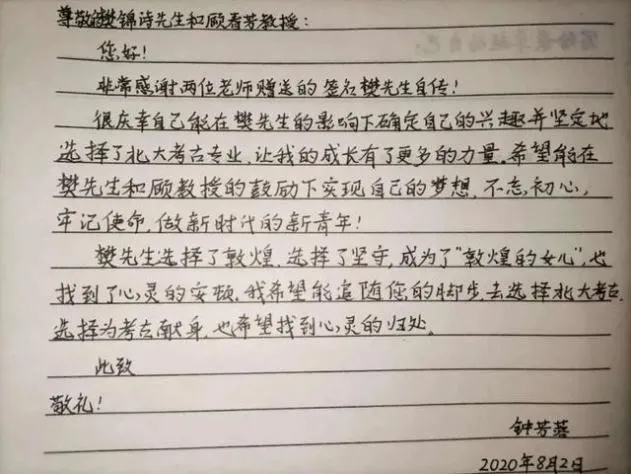 尊敬的樊锦诗先生和顾春芳教授：
您好！
非常感谢两位老师赠送的签名樊先生自传！
很庆幸自己能在樊先生的影响下确定自己的兴趣并坚定地
选择了北大考古专业，让我的成长有了更多的力量。希望能在
樊先生和顾教授的鼓励下实现自己的梦想，不忘初心，
牢记使命，做新时代的新青年！
樊先生选择了敦煌，选择了坚守，成为了“敦煌的女儿”，也
找到了心灵的安顿，我希望能追随您的脚步，去选择北大考古，
选择为考古献身，也希望找到心灵的归处。
此致
敬礼！
钟芳蓉
2020年8月2日